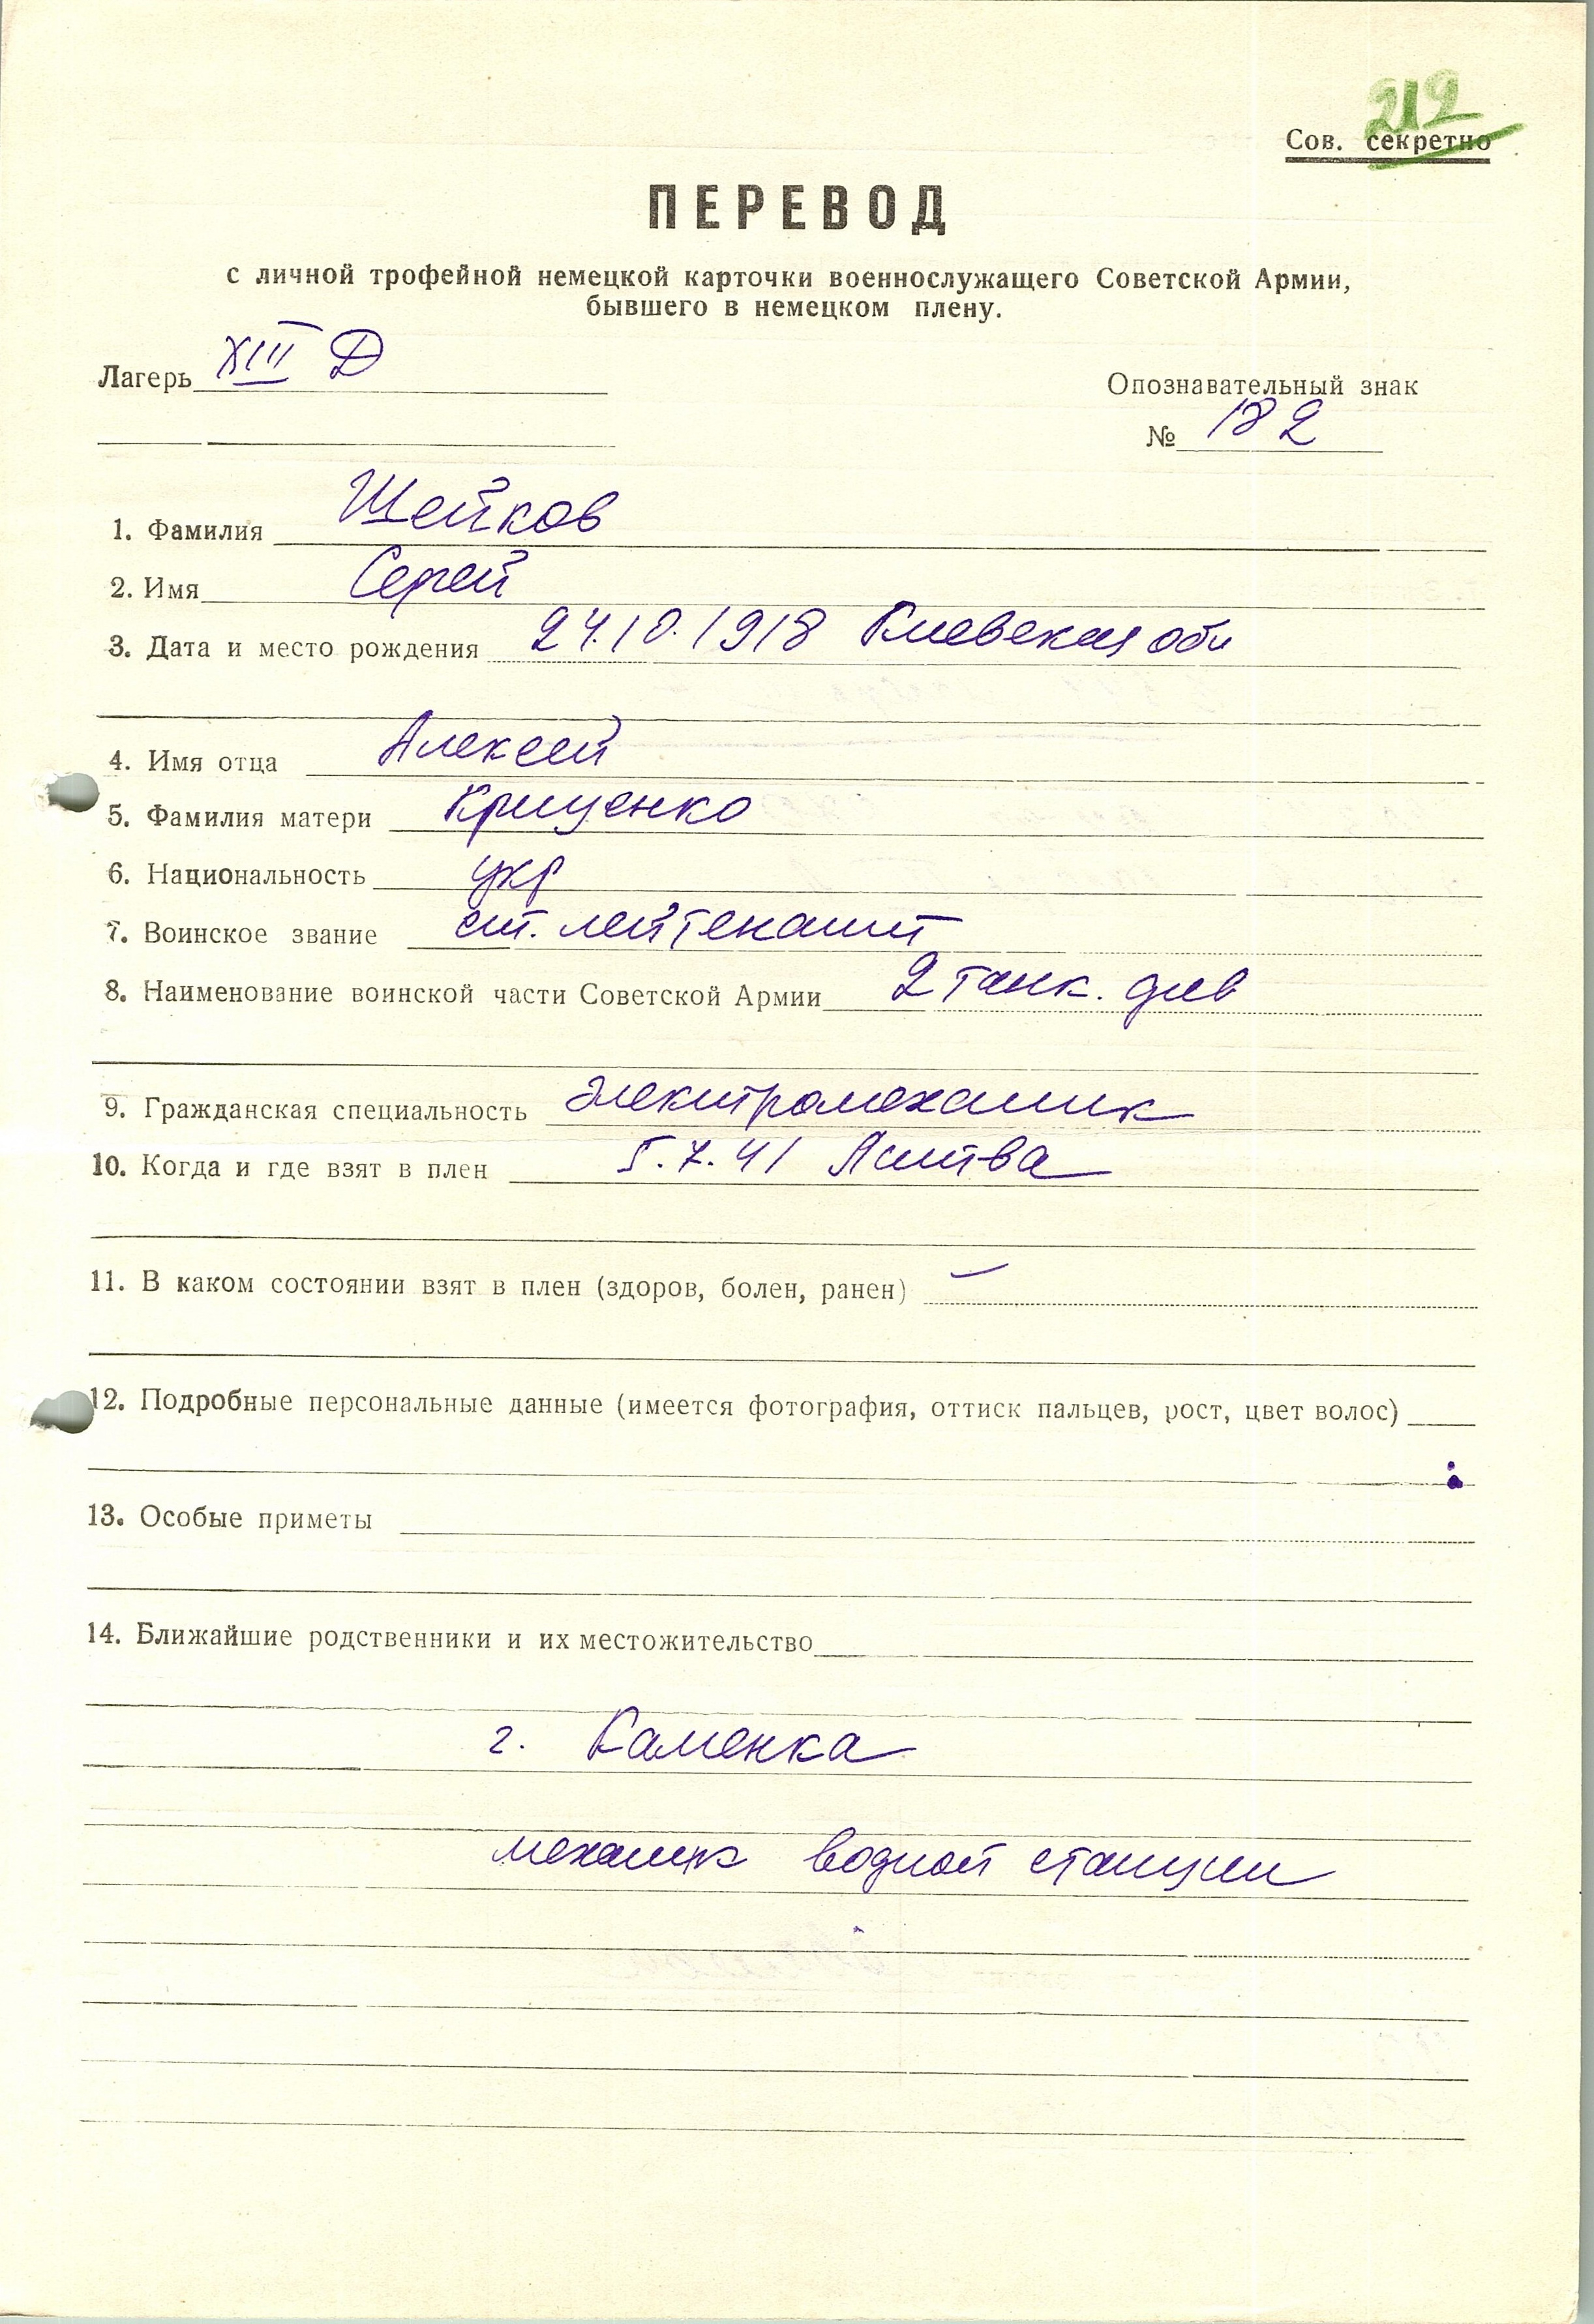 212
Сов. секретно
ПЕРЕВОД
с личной трофейной немецкой карточки военнослужащего Советской Армии,
бывшего в немецком плену.
Лагерь XIII Д
Опознавательный знак
№ 182
1. Фамилия Шейков
2. Имя Сергей
3. Дата и место рождения 24.10.1918 Киевская обл
4. Имя отца Алексей
5. Фамилия матери Крищенко
6. Национальность укр
7. Воинское звание ст. лейтенант
8. Наименование воинской части Советской Армии 2 танк. див
9. Гражданская специальность электромеханик
10. Когда и где взят в плен 5.7.41 Литва
11. В каком состоянии взят в плен (здоров, болен, ранен) —
12. Подробные персональные данные (имеется фотография, оттиск пальцев, рост, цвет волос)
13. Особые приметы
14. Ближайшие родственники и их местожительство
г. Каменка
механик водной станции